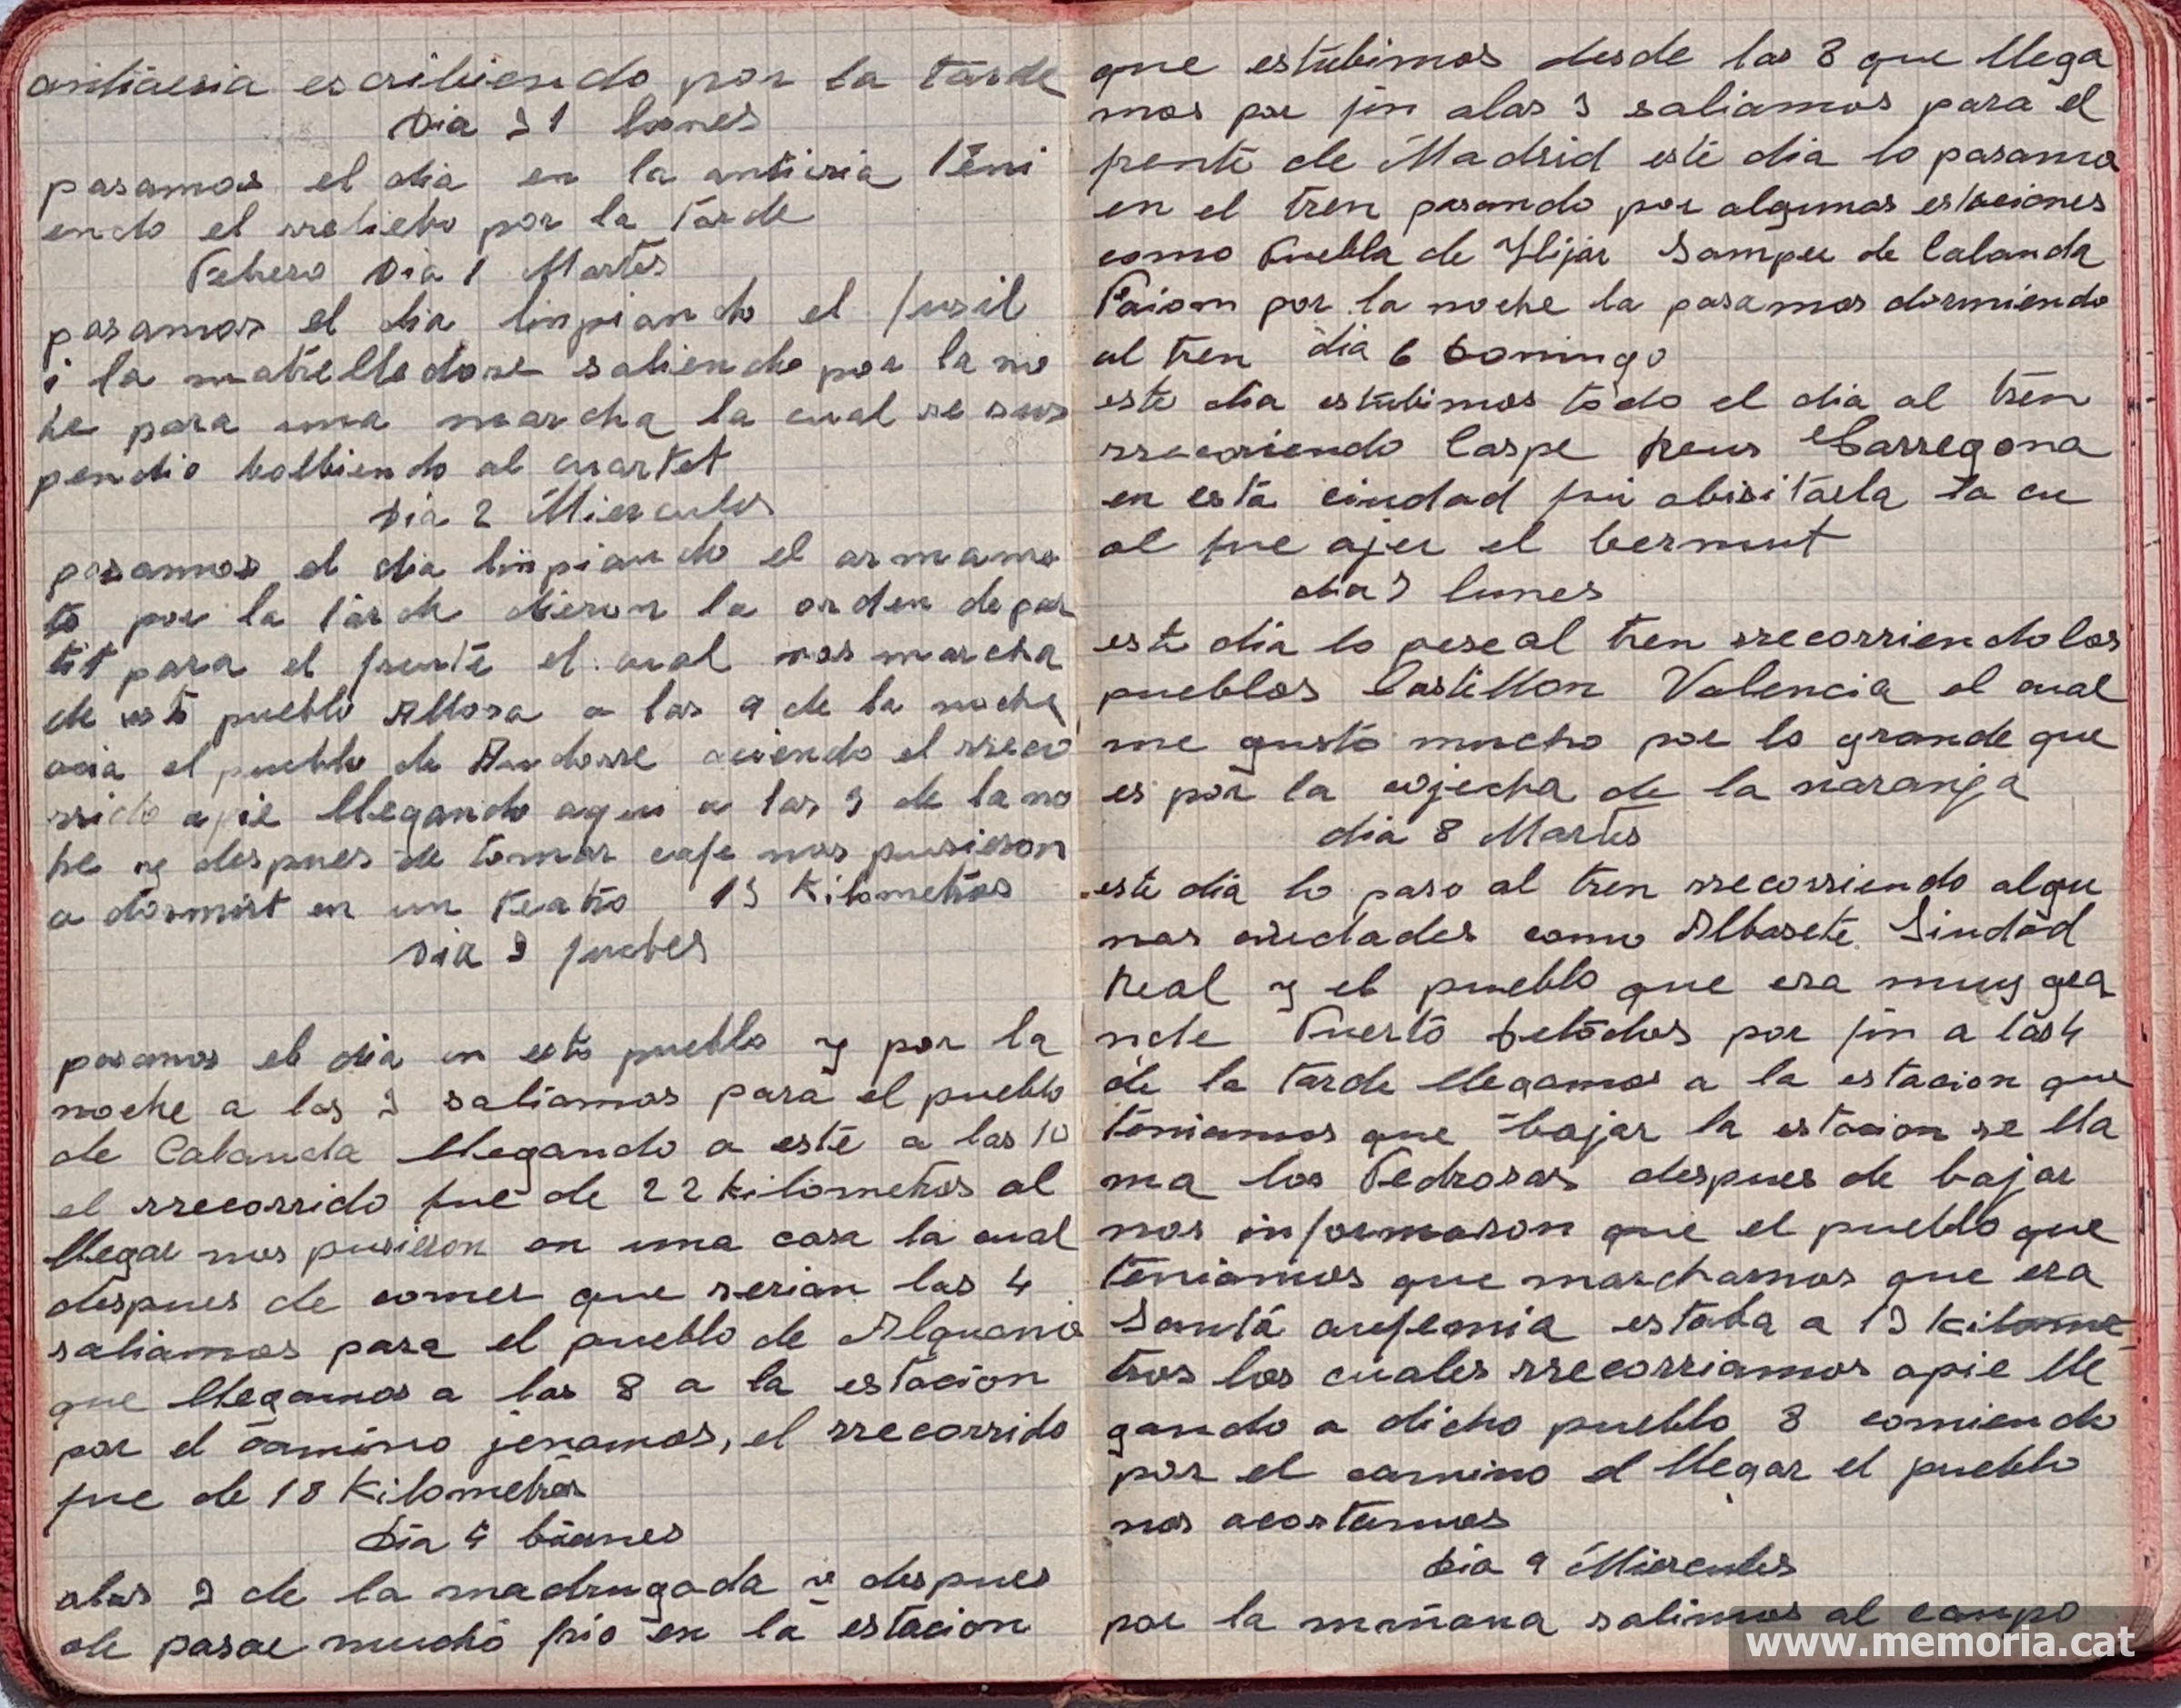 antiaeria escribiendo por la tarde
Dia 31 lunes
pasamos el dia en la antieria teni
endo el rreliebo por la tarde
Febrero Dia 1 Martes
pasamos el dia linpiando el fusil
i la matrelledore saliendo por la no
he para una marcha la cual se sus
pendio bolbiendo al cuartet
Dia 2 Mierculos
pasamos el dia linpiando el armame
to por la tarde dieron la orden de par
tit para el frente el cual nos marcha
de este pueblo Allosa a las 9 de la noche
acia el pueblo de Andorre aciendo el rreco
rrido apie llegando aqui a las 3 de la no
he y despues de tomar cafe nos pusieron
a dormirt en un teatro 13 Kilometros
Dia 3 juebes
pasamos el dia en este pueblo y por la
noche a las 3 saliamos para el pueblo
de Calanda llegando a este a las 10
el rrecorrido fue de 22 kilometros al
llegar nos pusieron en una casa la cual
despues de comer que serian las 4
saliamos para el pueblo de Alquanis
que llegamos a las 8 a la estacion
por el camino jenamos, el rrecorrido
fue de 18 Kilometros
Dia 4 biernes
alas 3 de la madrugada y despues
de pasar mucho frio en la estacion
que estubimos desde las 8 que llega
mos por fin alas 3 saliamos para el
frente de Madrid este dia lo pasamos
en el tren pasando por algunas estaciones
como Puebla de Hijar Samper de Calanda
Faion por la noche la pasamos dormiendo
al tren dia 6 Domingo
este dia estubimos todo el dia al tren
rrecoriendo Caspe Reus Tarregona
en esta ciudad fui abisitarla la cu
al fue ajer el bermut
dia 7 lunes
este dia lo pase al tren rrecorriendo los
pueblos Castillon Valencia el cual
me gusto mucho por lo grande que
es por la cojecha de la naranja
dia 8 Martes
este dia lo paso al tren rrecorriendo algu
nas ciudades como Albasete Siudad
Real y el pueblo que era muy gra
nde Puerto Detodos por fin a las 4
de la tarde llegamos a la estacion que
teniamos que bajar la estacion se lla
ma los Pedrosas despues de bajar
nos informaron que el pueblo que
teniamos que marcharnos que era
Santa aufemia estaba a 13 kilome
tros los cuales rrecorriamos apie lle
gando a dicho pueblo 8 comiendo
por el camino al llegar el pueblo
nos acostamos
Dia 9 Miercules
por la mañana salimos al canpo
www.memoria.cat